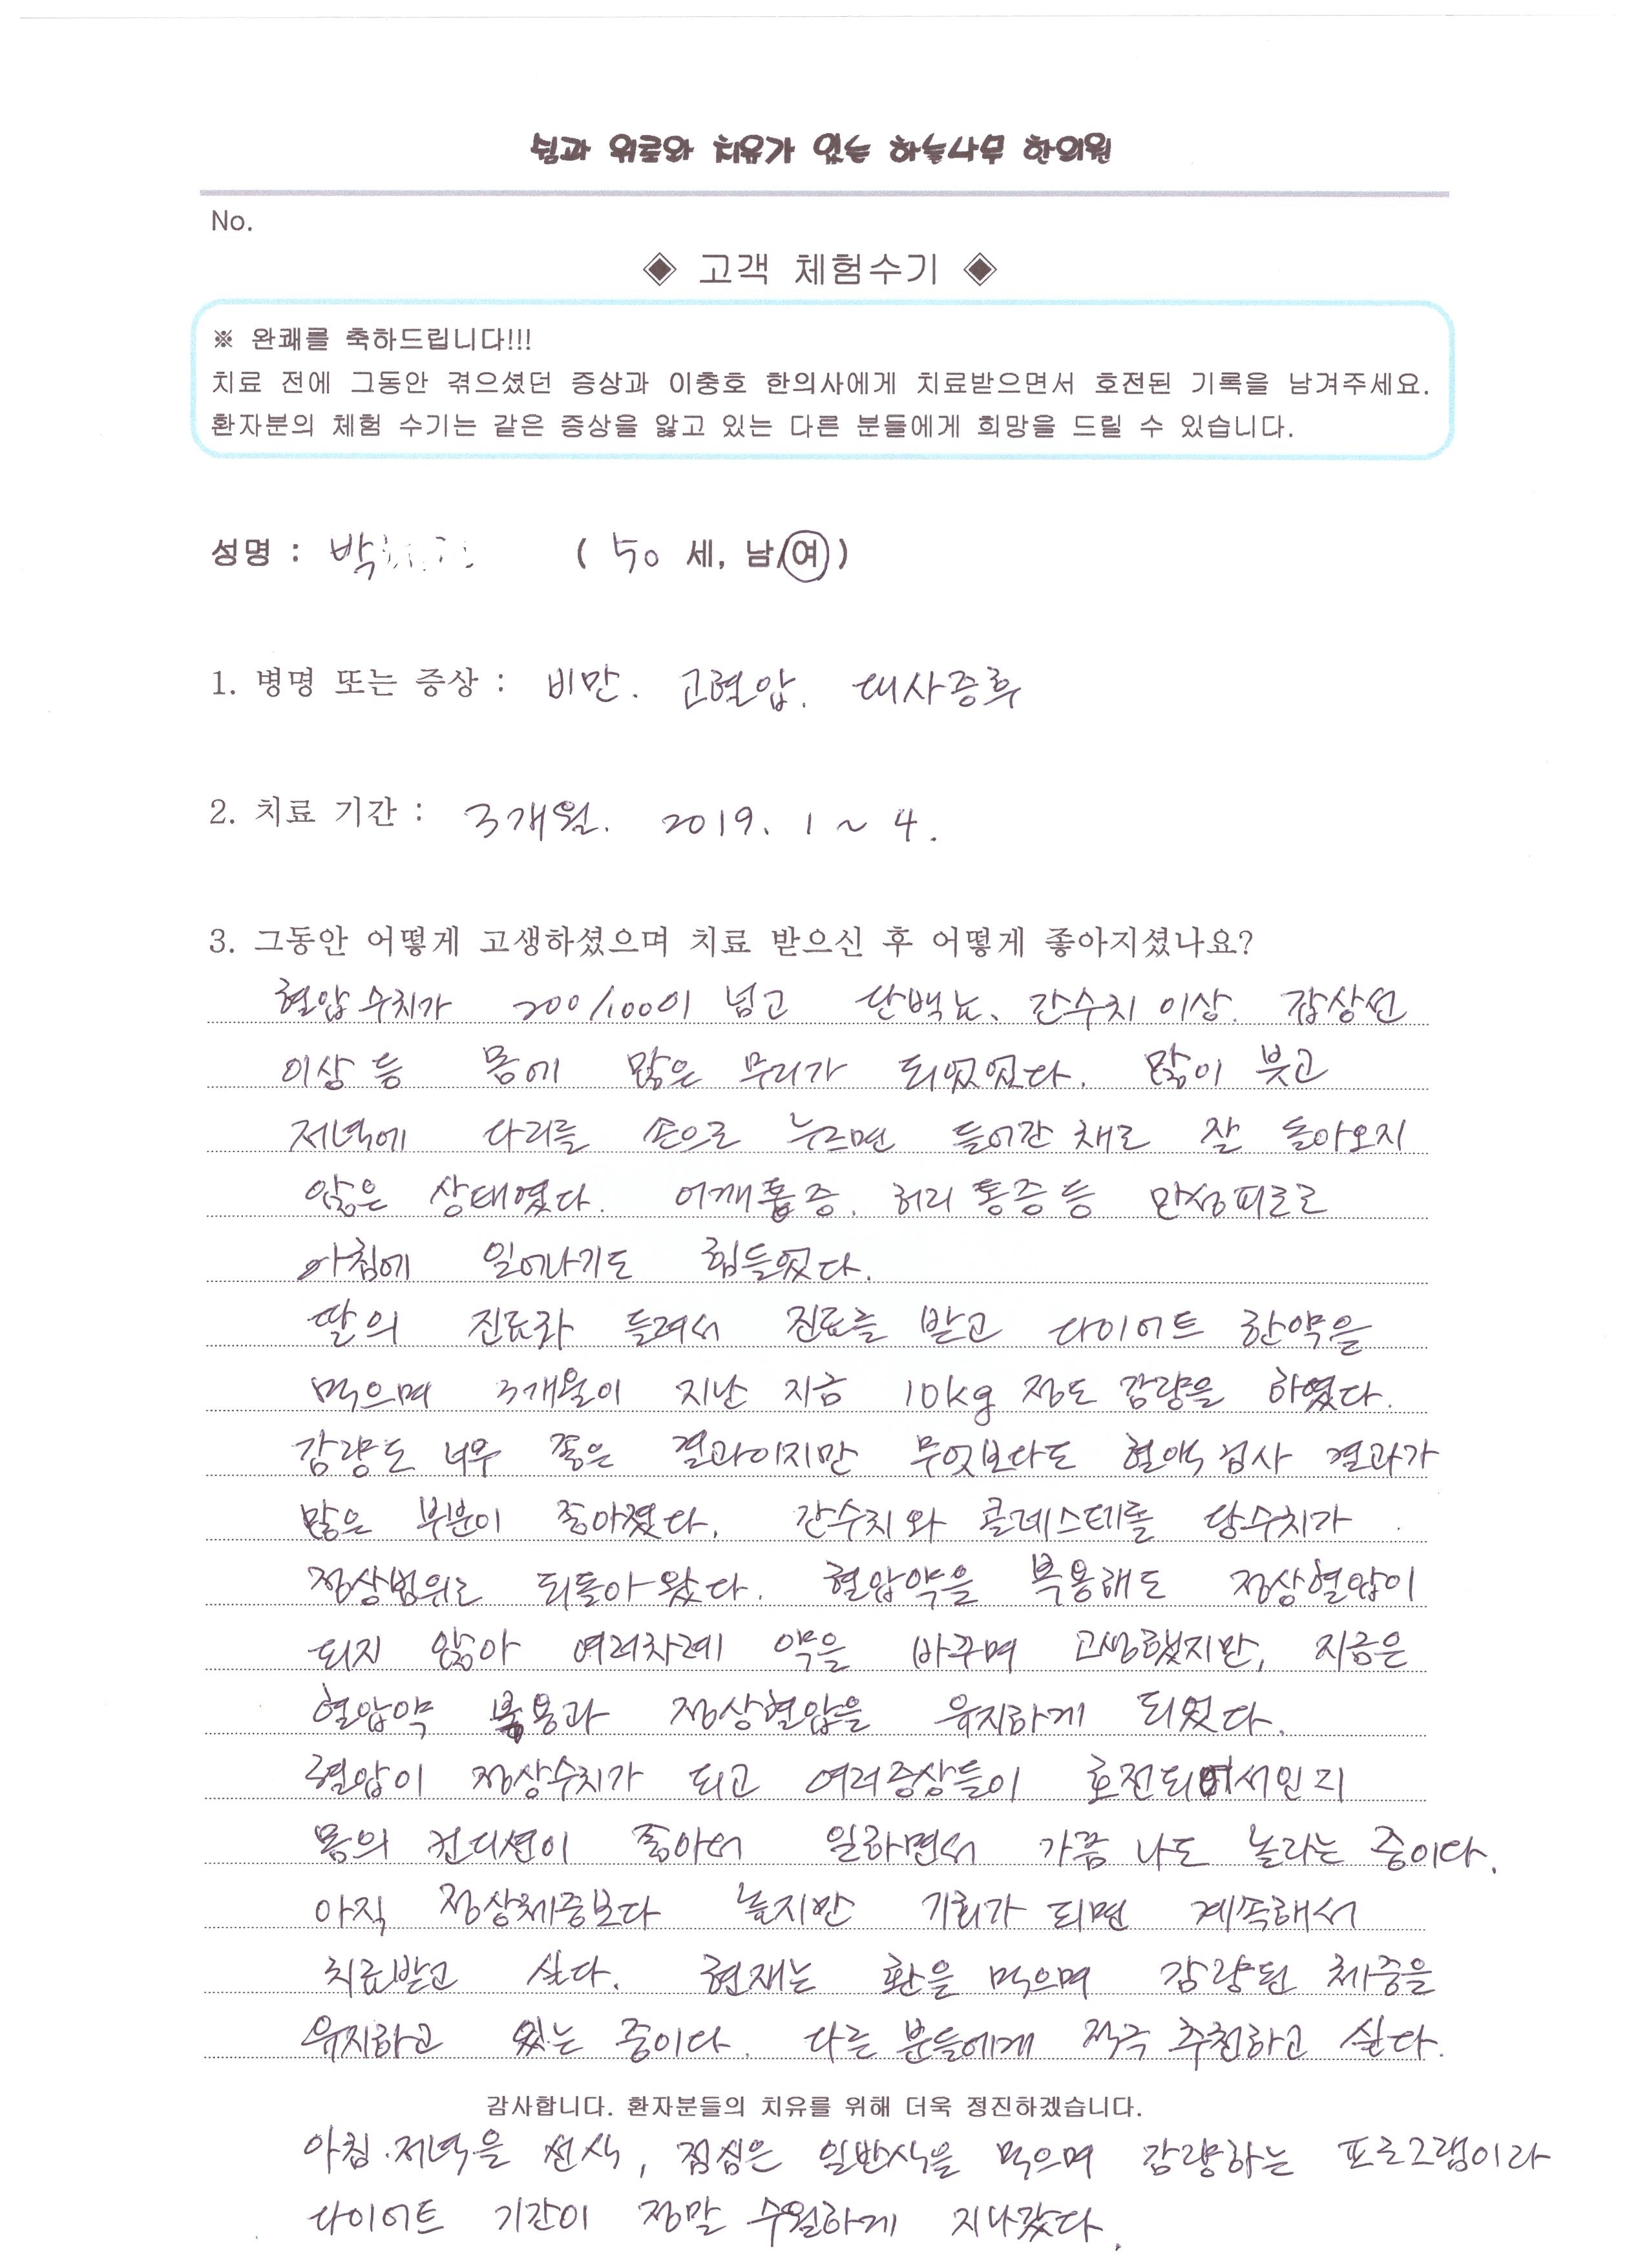 쉼과 위로와 치유가 있는 하늘나무 한의원
No.
◈ 고객 체험수기 ◈
※ 완쾌를 축하드립니다!!!
치료 전에 그동안 겪으셨던 증상과 이충호 한의사에게 치료받으면서 호전된 기록을 남겨주세요.
환자분의 체험 수기는 같은 증상을 앓고 있는 다른 분들에게 희망을 드릴 수 있습니다.
성명 : 박 ( 50 세, 남/여)
1. 병명 또는 증상 : 비만. 고혈압. 대사증후
2. 치료 기간 : 3개월. 2019. 1 ~ 4.
3. 그동안 어떻게 고생하셨으며 치료 받으신 후 어떻게 좋아지셨나요?
혈압수치가 200/100이 넘고 단백뇨, 간수치 이상. 갑상선
이상 등 몸에 많은 무리가 되었었다. 많이 붓고
저녁에 다리를 손으로 누르면 들어간 채로 잘 돌아오지
않은 상태였다. 어깨통증. 허리통증 등 만성피로로
아침에 일어나기도 힘들었다.
딸의 진료차 들려서 진료를 받고 다이어트 한약을
먹으며 3개월이 지난 지금 10kg 정도 감량을 하였다.
감량도 너무 좋은 결과이지만 무엇보다도 혈액검사 결과가
많은 부분이 좋아졌다. 간수치와 콜레스테롤 당수치가
정상범위로 되돌아 왔다. 혈압약을 복용해도 정상혈압이
되지 않아 여러차례 약을 바꾸며 고생했지만, 지금은
혈압약 복용과 정상혈압을 유지하게 되었다.
혈압이 정상수치가 되고 여러증상들이 호전되어서인지
몸의 컨디션이 좋아서 일하면서 가끔 나도 놀라는 중이다.
아직 정상체중보다 높지만 기회가 되면 계속해서
치료받고 싶다. 현재는 환을 먹으며 감량된 체중을
유지하고 있는 중이다. 다른 분들에게 적극 추천하고 싶다.
감사합니다. 환자분들의 치유를 위해 더욱 정진하겠습니다.
아침.저녁을 선식, 점심은 일반식을 먹으며 감량하는 프로그램이라
다이어트 기간이 정말 수월하게 지나갔다.